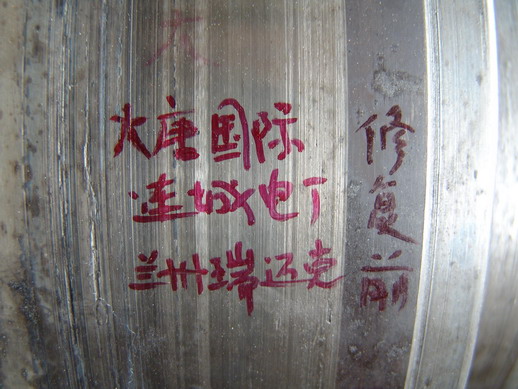 大
大唐国际
连城电厂
兰州瑞迈克
修复前